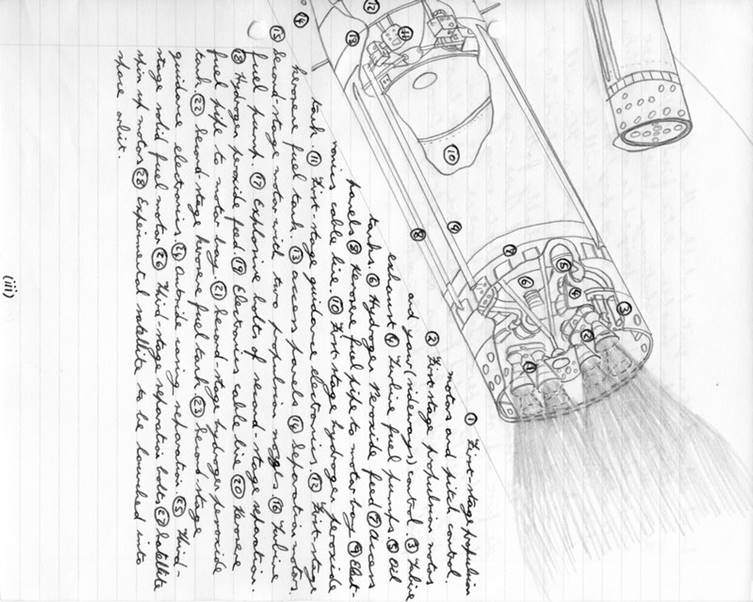 ⑫
⑭
⑬
⑪
⑩
⑧
⑨
⑦
⑥
⑤
④
③
②
①
① First-stage propulsion
motors and pitch control.
② First-stage propulsion motors
and yaw (sideways) control. ③ Turbine
exhaust ④ Turbine fuel pumps. ⑤ Oil
tanks. ⑥ Hydrogen Peroxide feed ⑦ Access
panels ⑧ Kerosene fuel pipe to motor bay ⑨ Elect-
ronics cable line. ⑩ First-stage hydrogen peroxide
tank. ⑪ First-stage guidance electronics. ⑫ First-stage
kerosene fuel tank. ⑬ access panels. ⑭ Separation motors.
⑮ Second-stage motor with two propulsion nozzles. ⑯ Turbine
fuel pump. ⑰ Explosive bolts of second-stage separation.
⑱ Hydrogen peroxide feed. ⑲ Electronics cable line ⑳ Kerosene
fuel pipe to motor bay. ㉑ Second-stage hydrogen peroxide
tank. ㉒ Second-stage kerosene fuel tank. ㉓ Second-stage
guidance electronics. ㉔ Outside casing separation. ㉕ Third-
stage solid fuel motor. ㉖ Third-stage separation bolts ㉗ Satellite
spin up motor ㉘ Experimental satellite to be launched into
space orbit.
(iii)